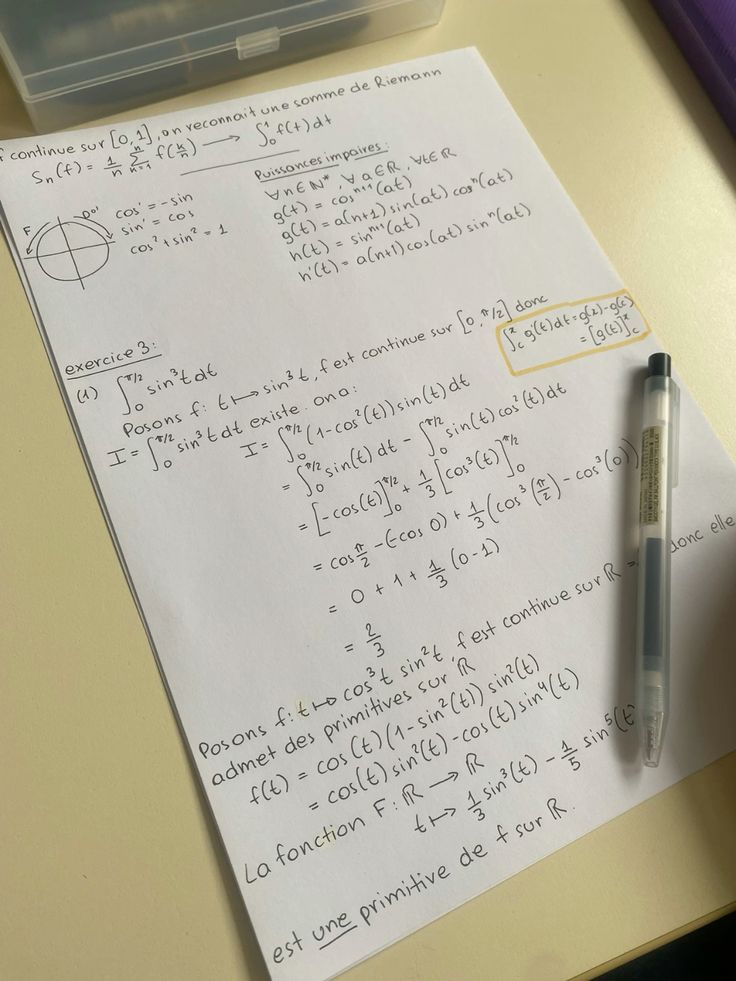 f continue sur [0,1], on reconnait une somme de Riemann
Sₙ(f) = 1/n Σₖ₌₁ⁿ f(k/n) ⟶ ∫₀¹ f(t)dt
F
Do'
cos' = -sin
sin' = cos
cos² + sin² = 1
Puissances impaires :
∀n∈ℕ*, ∀a∈ℝ, ∀t∈ℝ
g(t) = cosⁿ⁺¹(at)
g(t) = a(n+1) sin(at) cosⁿ(at)
h(t) = sinⁿ⁺¹(at)
h'(t) = a(n+1) cos(at) sinⁿ(at)
exercice 3 :
(1) ∫₀^(π/2) sin³t dt
Posons f: t ↦ sin³t, f est continue sur [0, π/2] donc
∫_c^x g'(t)dt = g(x) - g(c)
= [g(t)]_c^x
I = ∫₀^(π/2) sin³t dt existe. on a :
I = ∫₀^(π/2) (1-cos²(t)) sin(t) dt
= ∫₀^(π/2) sin(t) dt - ∫₀^(π/2) sin(t) cos²(t) dt
= [-cos(t)]₀^(π/2) + 1/3 [cos³(t)]₀^(π/2)
= cos π/2 - (-cos 0) + 1/3 (cos³(π/2) - cos³(0))
= 0 + 1 + 1/3 (0-1)
= 2/3
Posons f: t ↦ cos³t sin²t, f est continue sur ℝ donc elle
admet des primitives sur ℝ
f(t) = cos(t) (1-sin²(t)) sin²(t)
= cos(t) sin²(t) - cos(t) sin⁴(t)
La fonction F: ℝ ⟶ ℝ
t ↦ 1/3 sin³(t) - 1/5 sin⁵(t
est une primitive de f sur ℝ.